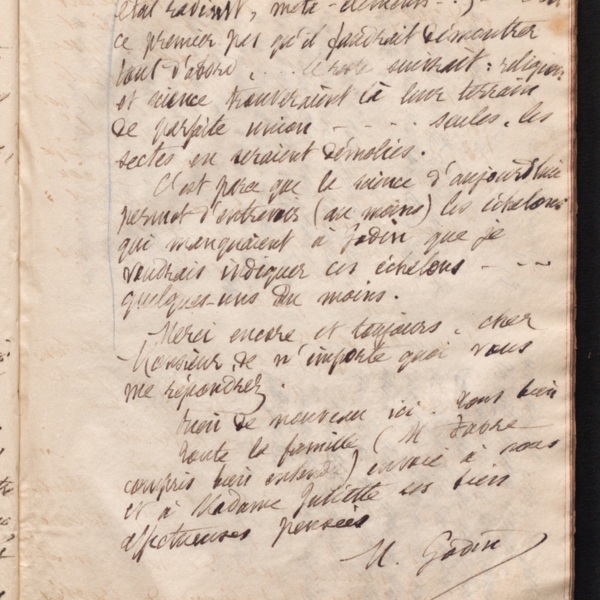 état radiant, méta-éléments . . ) — c'est
ce premier pas qu'il faudrait démontrer
tout d'abord , . . . le reste suivrait : religion
et science trouveraient là leur terrain
de parfaite union — - - . seules, les
sectes en seraient démolies.
C'est parce que la science d'aujourd'hui
permet d'entrevoir (au moins) les échelons
qui manquaient à Godin que je
voudrais indiquer ces échelons - - -
quelques-uns du moins.
Merci encore et toujours, cher
Monsieur, de n'importe quoi vous
me répondrez.
Rien de nouveau ici. Tous bien
Toute la famille (M Fabre
compris bien entendu) envoie à vous
et à Madame Juliette ses bien
affectueuses pensées
M. Godin